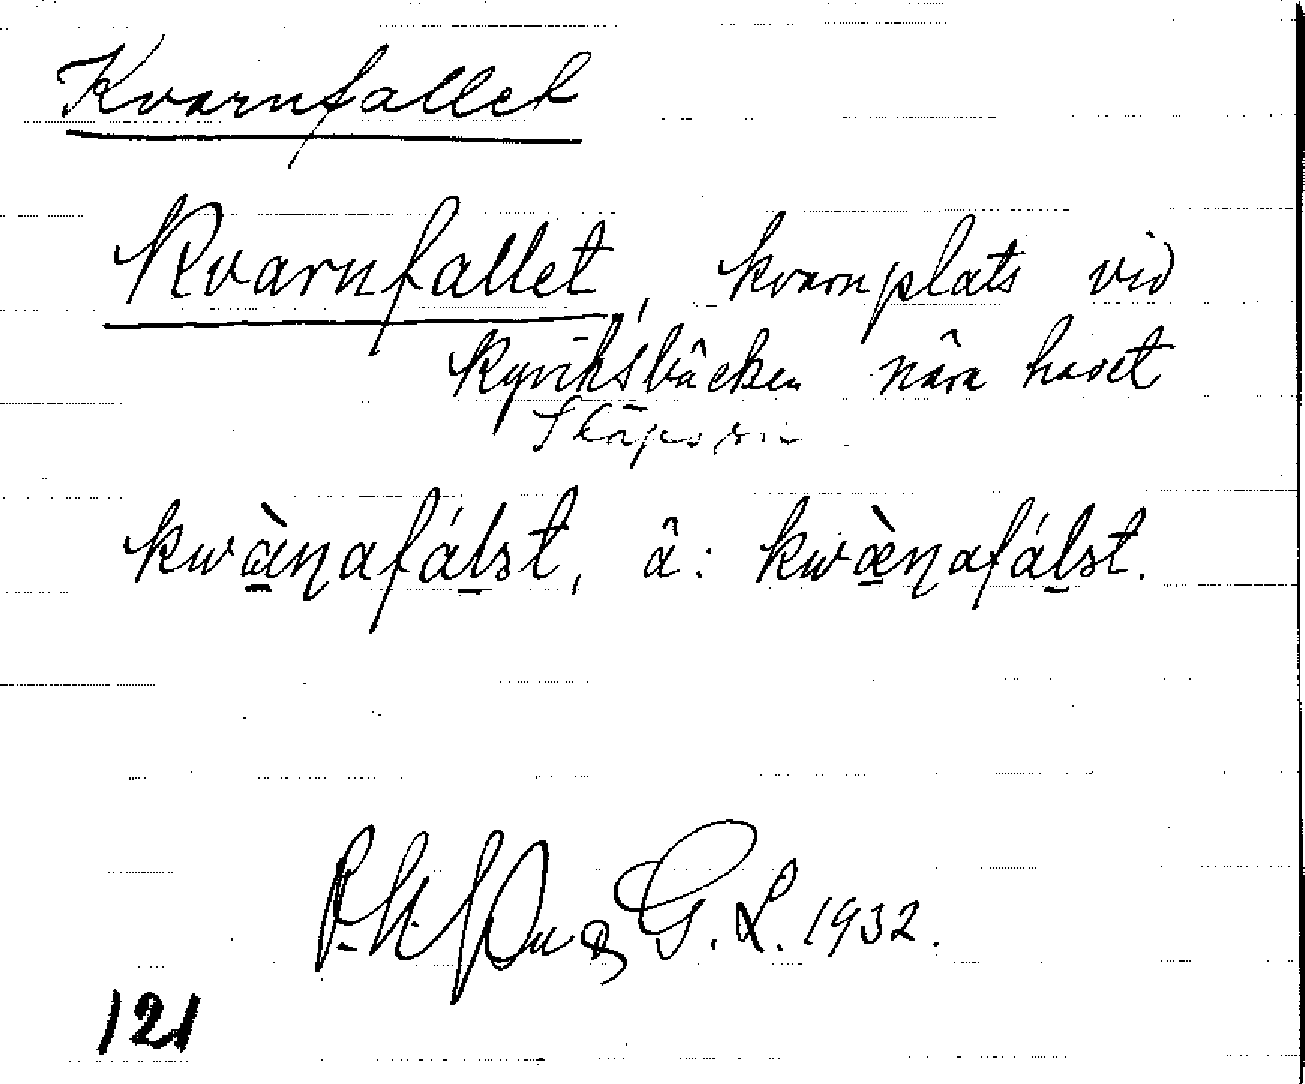 Kvarnfallet
Kvarnfallet, kvarnplats vid
Kyviksbäcken nära havet
kwàŋafálst, ä: kwæ̀ŋafálst.
G. L. 1932.
121